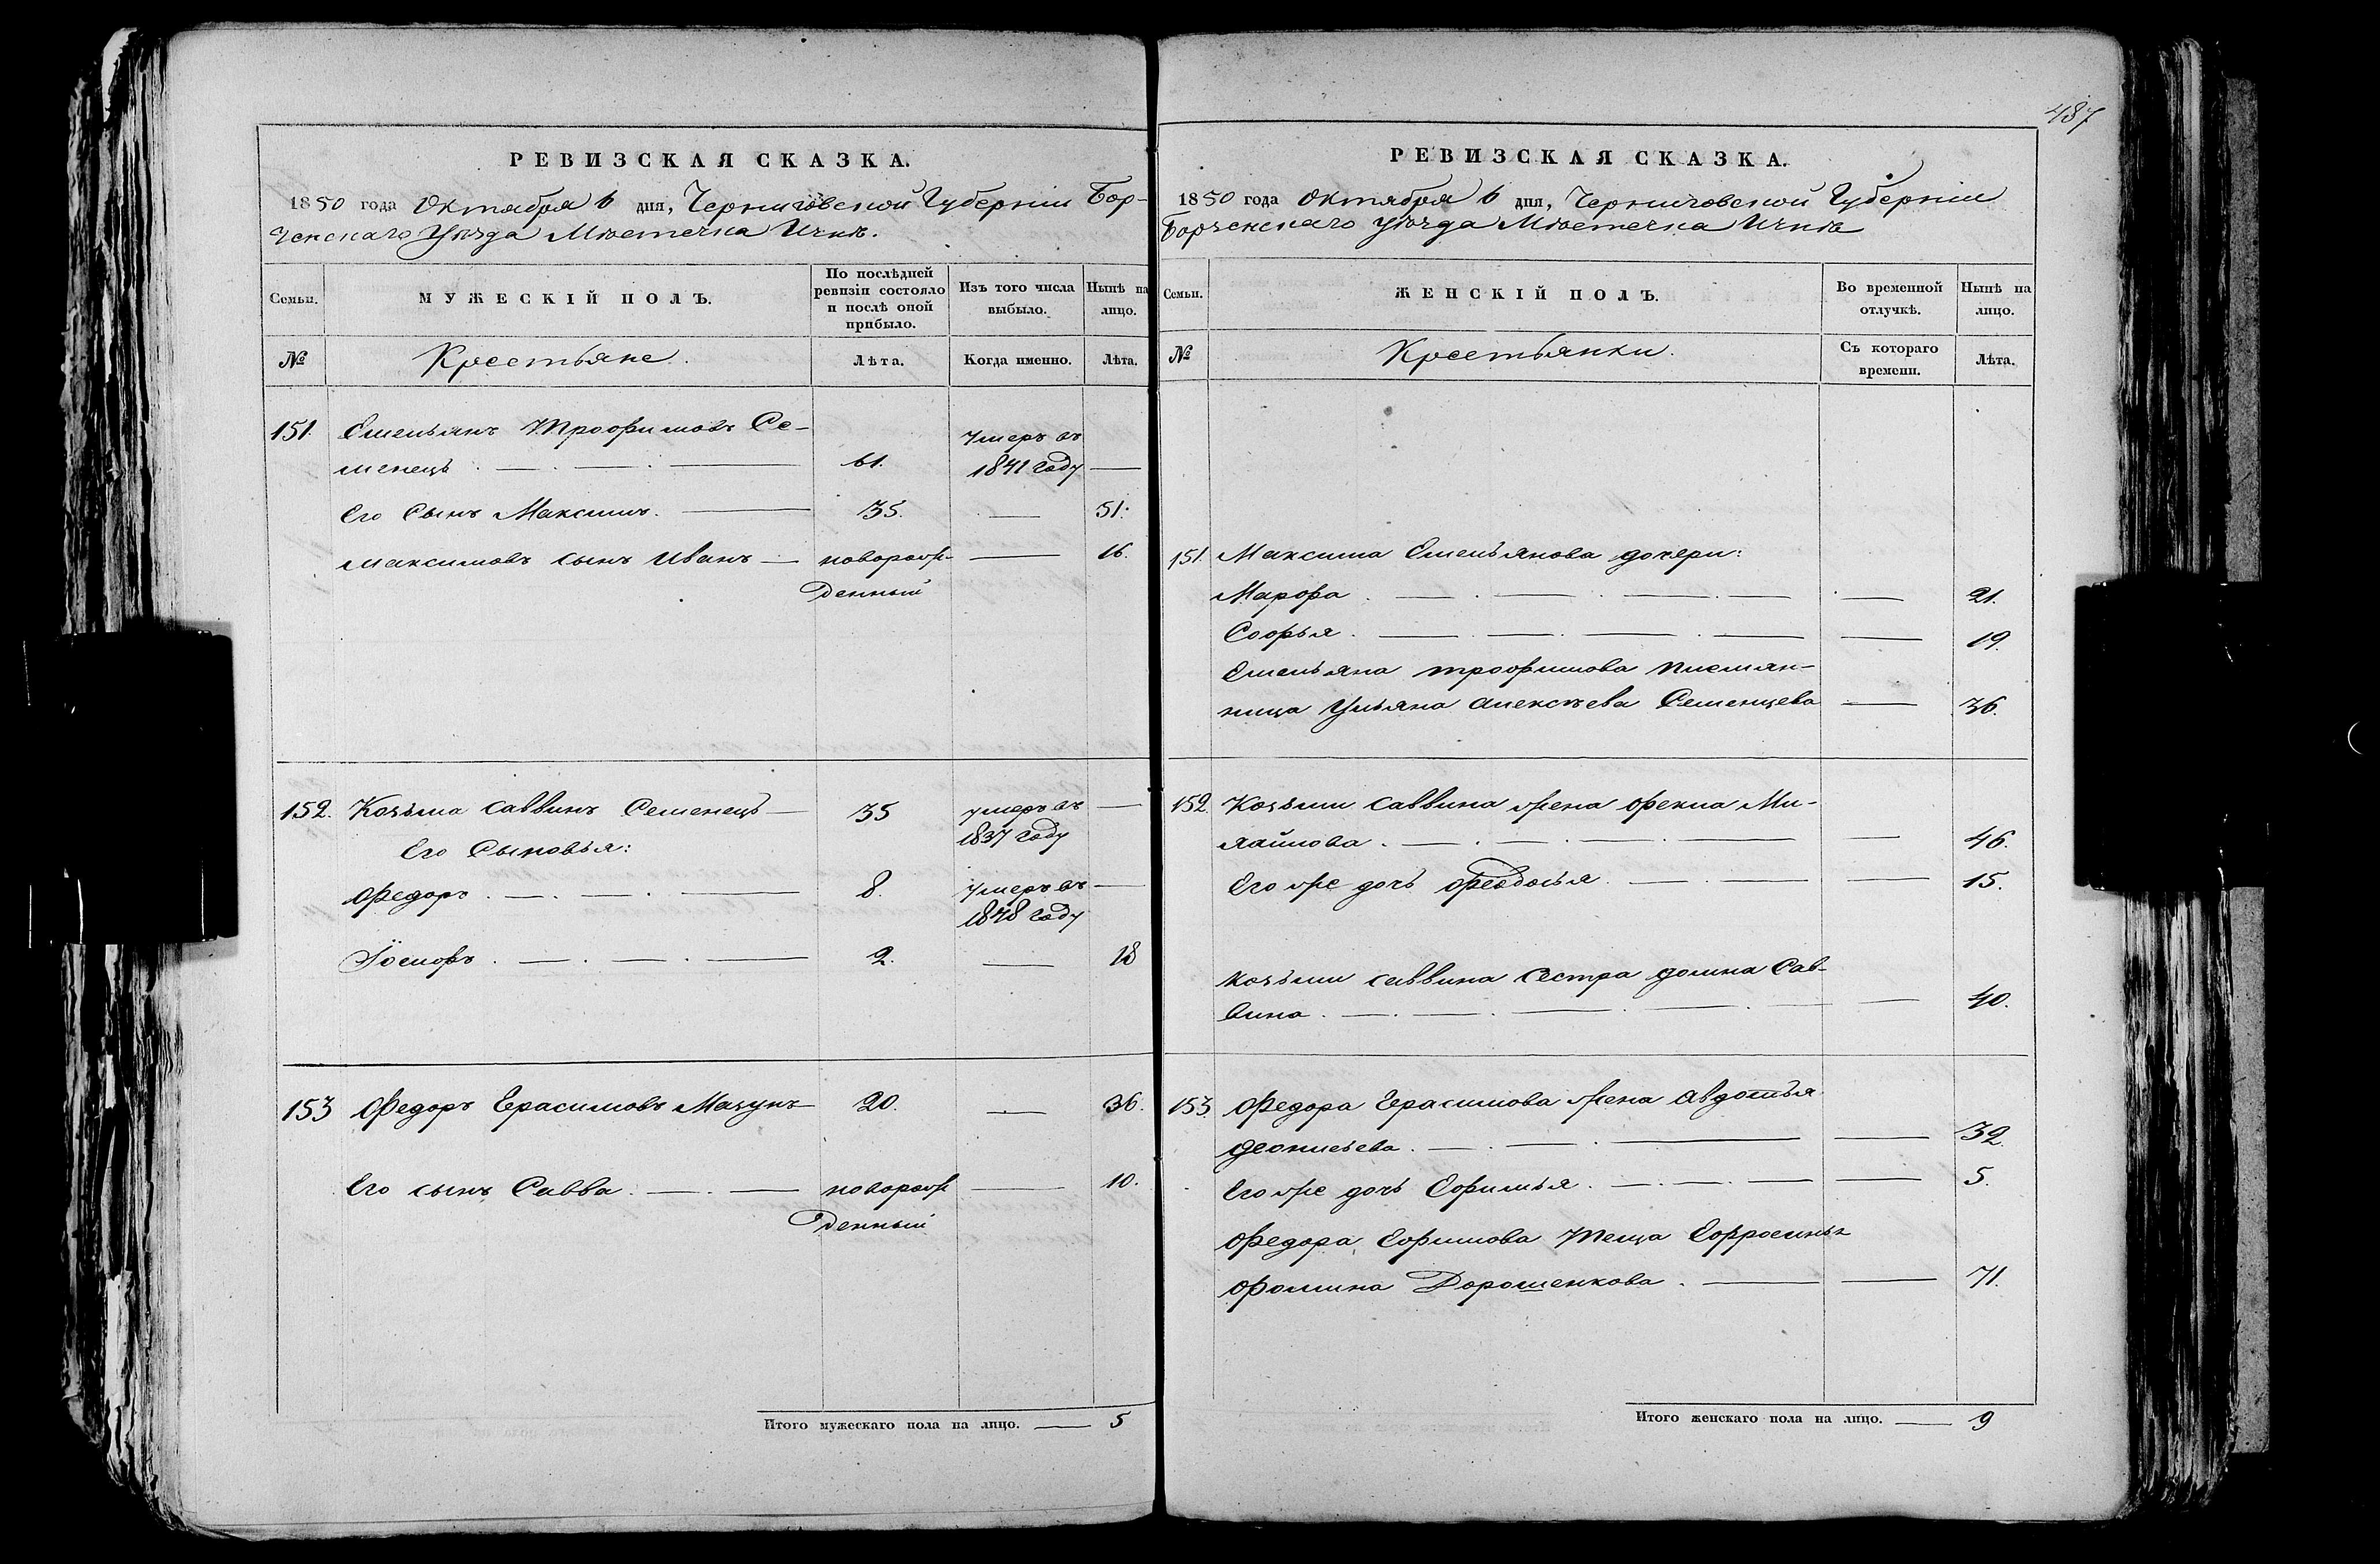 РЕВИЗСКАЯ СКАЗКА.
1850 года Октября 6 дня, Черниговской Губерніи Бор-
зенскаго Уѣзда Мѣстечка Ични.
Семьи.
МУЖЕСКІЙ ПОЛЪ.
По послѣдней ревизіи состояло и послѣ оной прибыло.
Изъ того числа выбыло.
Нынѣ на лицо.
№
Крестьяне.
Лѣта.
Когда именно.
Лѣта.
151. Емельянъ Трофимовъ Се- Умеръ въ
менецъ 61. 1841 году
Его Сынъ Максимъ. 35. 51.
Максимовъ сынъ Иванъ новорож- 16.
денный
152. Козьма Саввинъ Семенецъ 35 умеръ въ
Его Сыновья: 1837 году
Федоръ 8. умеръ въ
1848 году
Іосифъ 2. 18
153 Федоръ Герасимовъ Мазунъ 20. 36.
Его сынъ Савва. новорож 10.
денный
Итого мужескаго пола на лицо. 5
487
РЕВИЗСКАЯ СКАЗКА.
1850 года Октября 6 дня, Черниговской Губерніи
Борзенскаго уѣзда Мѣстечка Ични
Семьи.
ЖЕНСКІЙ ПОЛЪ.
Во временной отлучкѣ.
Нынѣ на лицо.
№
Крестьянки.
Съ котораго времени.
Лѣта.
151. Максима Емельянова дочери:
Марфа 21.
Софья 19.
Емельяна трофимова племян-
ница Ульяна алексѣева Семенцева 36.
152. Козьми Саввина жена Фекла Ми-
46.
Его же дочь Феодосья. 15.
Козьми саввина сестра домна Сав-
вина 40.
153. Федора Герасимова жена Авдотья
деонисьева. 32.
Его же дочь Ефимья. 5.
Федора Ефимова теща Ефросинья
Фомина Дорошенкова. 71.
Итого женскаго пола на лицо. 9